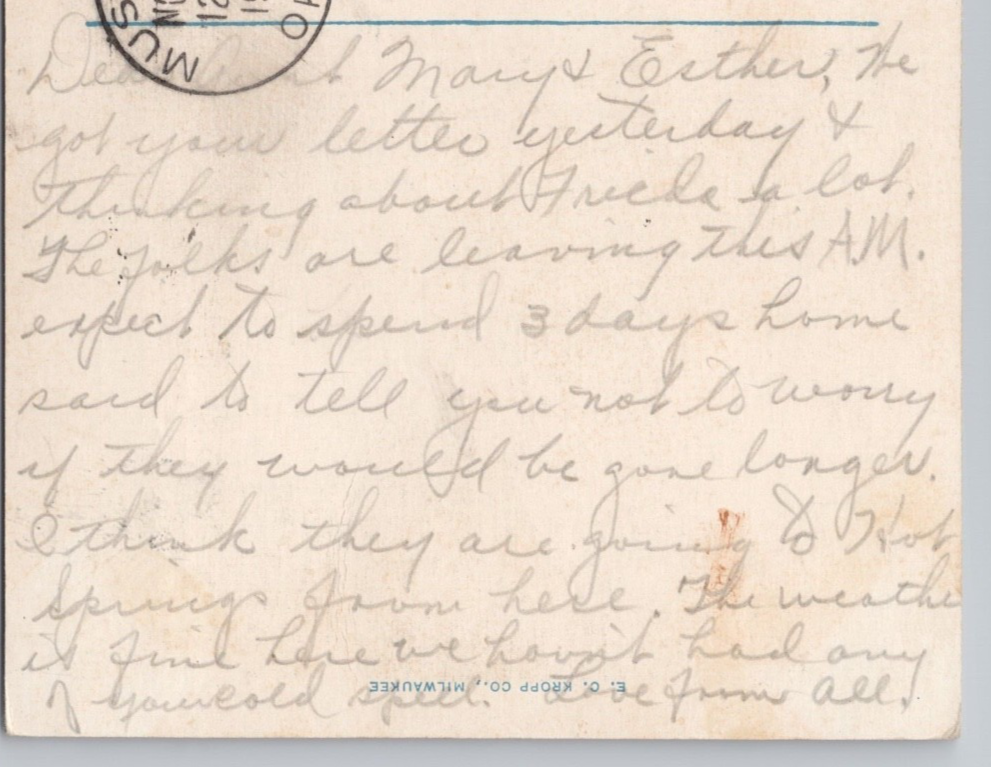 Dear Aunt Mary & Esther, We
got your letter yesterday &
thinking about Frieda a lot.
The folks are leaving this A.M.
expect to spend 3 days home
said to tell you not to worry
if they would be gone longer.
I think they are going to Hot
Springs from here. The weathe
is fine here we havn't had any
of your cold spell. Love from all.
E. C. KROPP CO., MILWAUKEE
MUS
HO